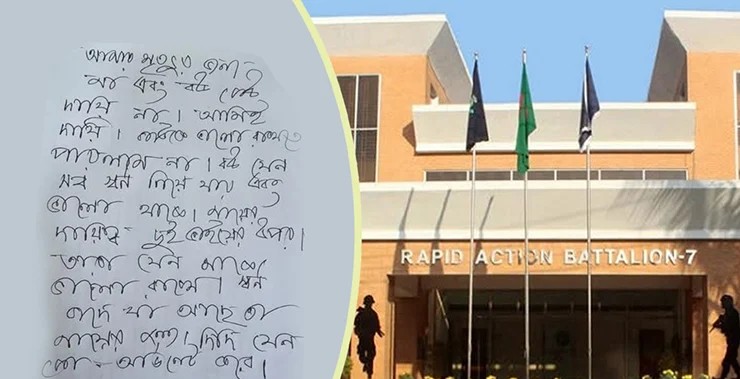 আমার মৃত্যুর জন্য
মা এবং বউ কেউ
দায়ি না। আমিই
দায়ি। কাউকে ভালো রাখতে
পারলাম না। বউ যেন
সব স্বর্ণ নিয়ে যায় এবং
ভালো থাকে। মায়ের
দায়িত্ব দুই ভাইয়ের উপর।
তারা যেন মাকে
ভালো রাখে। স্বর্ণ
বাদে যা আছে তা
মায়ের জন্য। দিদি যেন
কো-অর্ডিনেট করে।
RAPID ACTION BATTALION-7